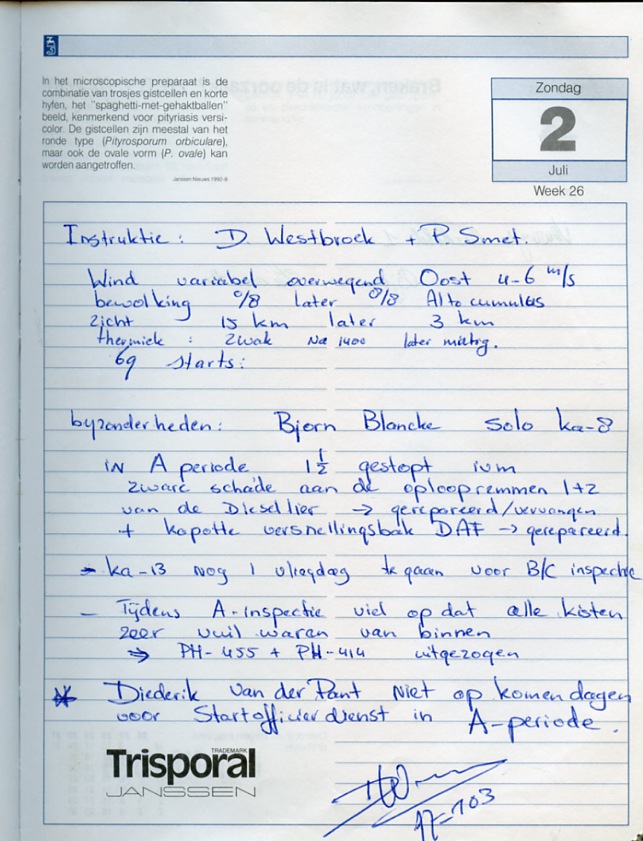 In het microscopische preparaat is de
combinatie van trosjes gistcellen en korte
hyfen, het "spaghetti-met-gehaktballen"
beeld, kenmerkend voor pityriasis versi-
color. De gistcellen zijn meestal van het
ronde type (Pityrosporum orbiculare),
maar ook de ovale vorm (P. ovale) kan
worden aangetroffen.
Janssen Nieuws 1992-8
Zondag
2
Juli
Week 26
Instruktie: D. Westbroek + P. Smet.
Wind variabel overwegend Oost 4-6 m/s
bewolking 0/8 later 8/8 Alto cumulus
zicht 15 km later 3 km
thermiek: zwak Na 1400 later matig.
69 starts:
byzonderheden: Bjorn Blancke Solo ka-8
in A periode 1½ gestopt ivm
zware schade aan de oploopremmen 1+2
van de Diesellier → gerepareerd/vervangen
+ kapotte versnellingsbak DAF → gerepareerd.
→ ka-13 nog 1 vliegdag te gaan voor B/C inspectie
- Tijdens A-inspectie viel op dat alle kisten
zeer vuil waren van binnen
⇒ PH-455 + PH-414 uitgezogen
* Diederik van der Pant Niet op komen dagen
voor Startofficierdienst in A-periode.
Trisporal
TRADEMARK
JANSSEN
17-703